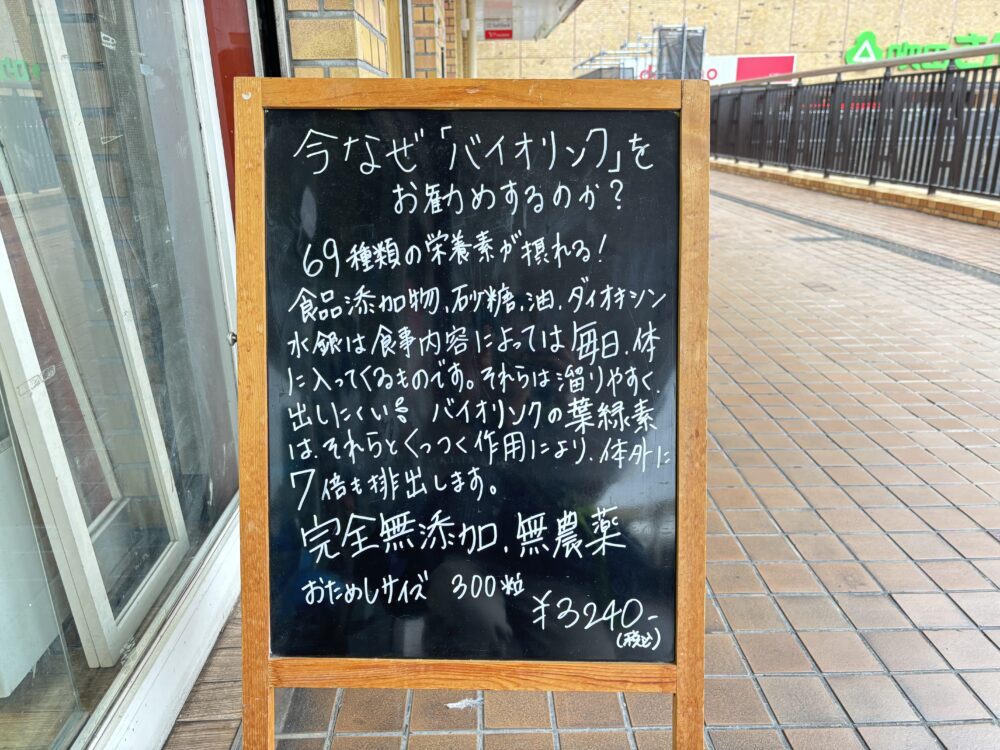 今なぜ「バイオリンク」を
お勧めするのか？
69種類の栄養素が摂れる！
食品添加物、砂糖、油、ダイオキシン
水銀は食事内容によっては毎日、体
に入ってくるものです。それらは溜りやすく、
出しにくい!! バイオリンクの葉緑素
は、それらとくっつく作用により、体外に
7倍も排出します。
完全無添加、無農薬
おためしサイズ 300粒
¥3240-
(税込)